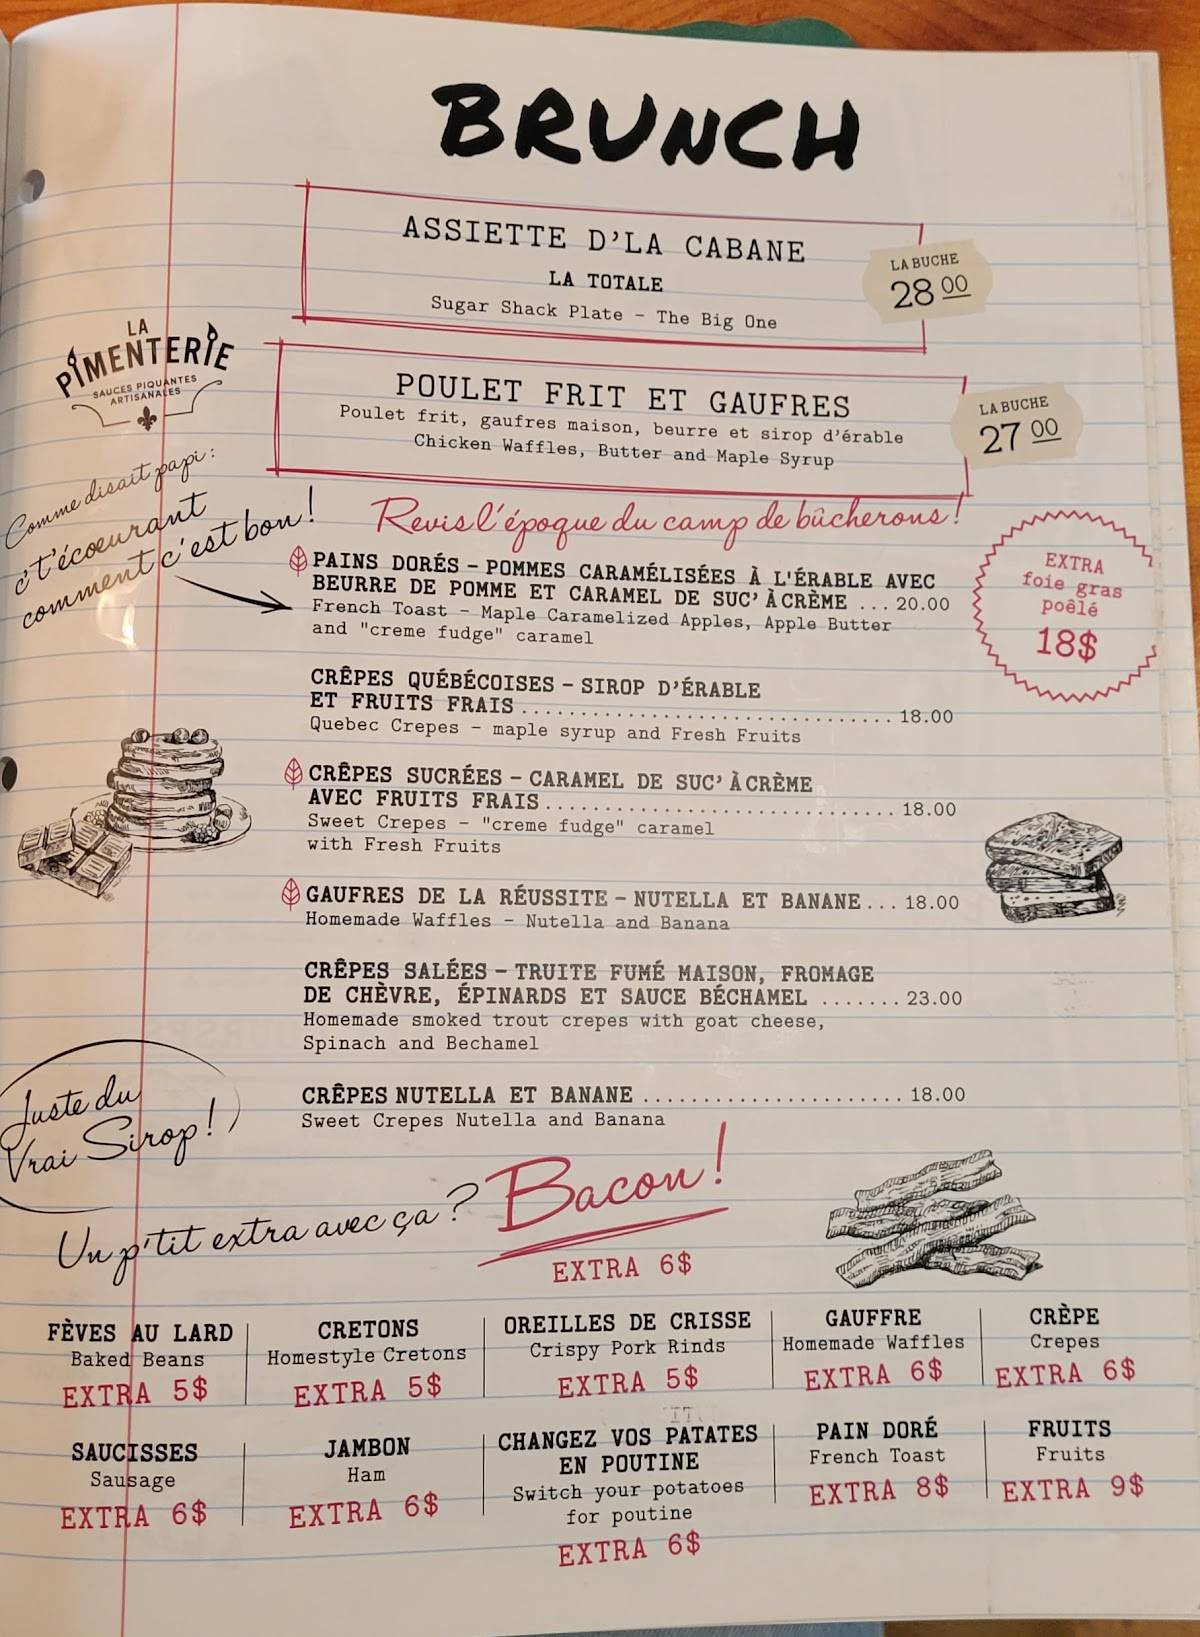 BRUNCH
ASSIETTE D'LA CABANE
LA TOTALE
Sugar Shack Plate - The Big One
LA BUCHE
28 00
LA
PIMENTERIE
SAUCES PIQUANTES
ARTISANALES
POULET FRIT ET GAUFRES
Poulet frit, gaufres maison, beurre et sirop d'érable
Chicken Waffles, Butter and Maple Syrup
LA BUCHE
27 00
Comme disait papi:
c't'écoeurant
comment c'est bon!
Revis l'époque du camp de bûcherons!
PAINS DORÉS - POMMES CARAMÉLISÉES À L'ÉRABLE AVEC
BEURRE DE POMME ET CARAMEL DE SUC' À CRÈME ... 20.00
French Toast - Maple Caramelized Apples, Apple Butter
and "creme fudge" caramel
EXTRA
foie gras
poêlé
18$
CRÊPES QUÉBÉCOISES - SIROP D'ÉRABLE
ET FRUITS FRAIS ................................ 18.00
Quebec Crepes - maple syrup and Fresh Fruits
CRÊPES SUCRÉES - CARAMEL DE SUC' À CRÈME
AVEC FRUITS FRAIS .............................. 18.00
Sweet Crepes - "creme fudge" caramel
with Fresh Fruits
GAUFRES DE LA RÉUSSITE - NUTELLA ET BANANE ... 18.00
Homemade Waffles - Nutella and Banana
CRÊPES SALÉES - TRUITE FUMÉ MAISON, FROMAGE
DE CHÈVRE, ÉPINARDS ET SAUCE BÉCHAMEL ....... 23.00
Homemade smoked trout crepes with goat cheese,
Spinach and Bechamel
CRÊPES NUTELLA ET BANANE ...................... 18.00
Sweet Crepes Nutella and Banana
Juste du
Vrai Sirop!
Un p'tit extra avec ça?
Bacon!
EXTRA 6$
FÈVES AU LARD
Baked Beans
EXTRA 5$
CRETONS
Homestyle Cretons
EXTRA 5$
OREILLES DE CRISSE
Crispy Pork Rinds
EXTRA 5$
GAUFFRE
Homemade Waffles
EXTRA 6$
CRÈPE
Crepes
EXTRA 6$
SAUCISSES
Sausage
EXTRA 6$
JAMBON
Ham
EXTRA 6$
CHANGEZ VOS PATATES
EN POUTINE
Switch your potatoes
for poutine
EXTRA 6$
PAIN DORÉ
French Toast
EXTRA 8$
FRUITS
Fruits
EXTRA 9$